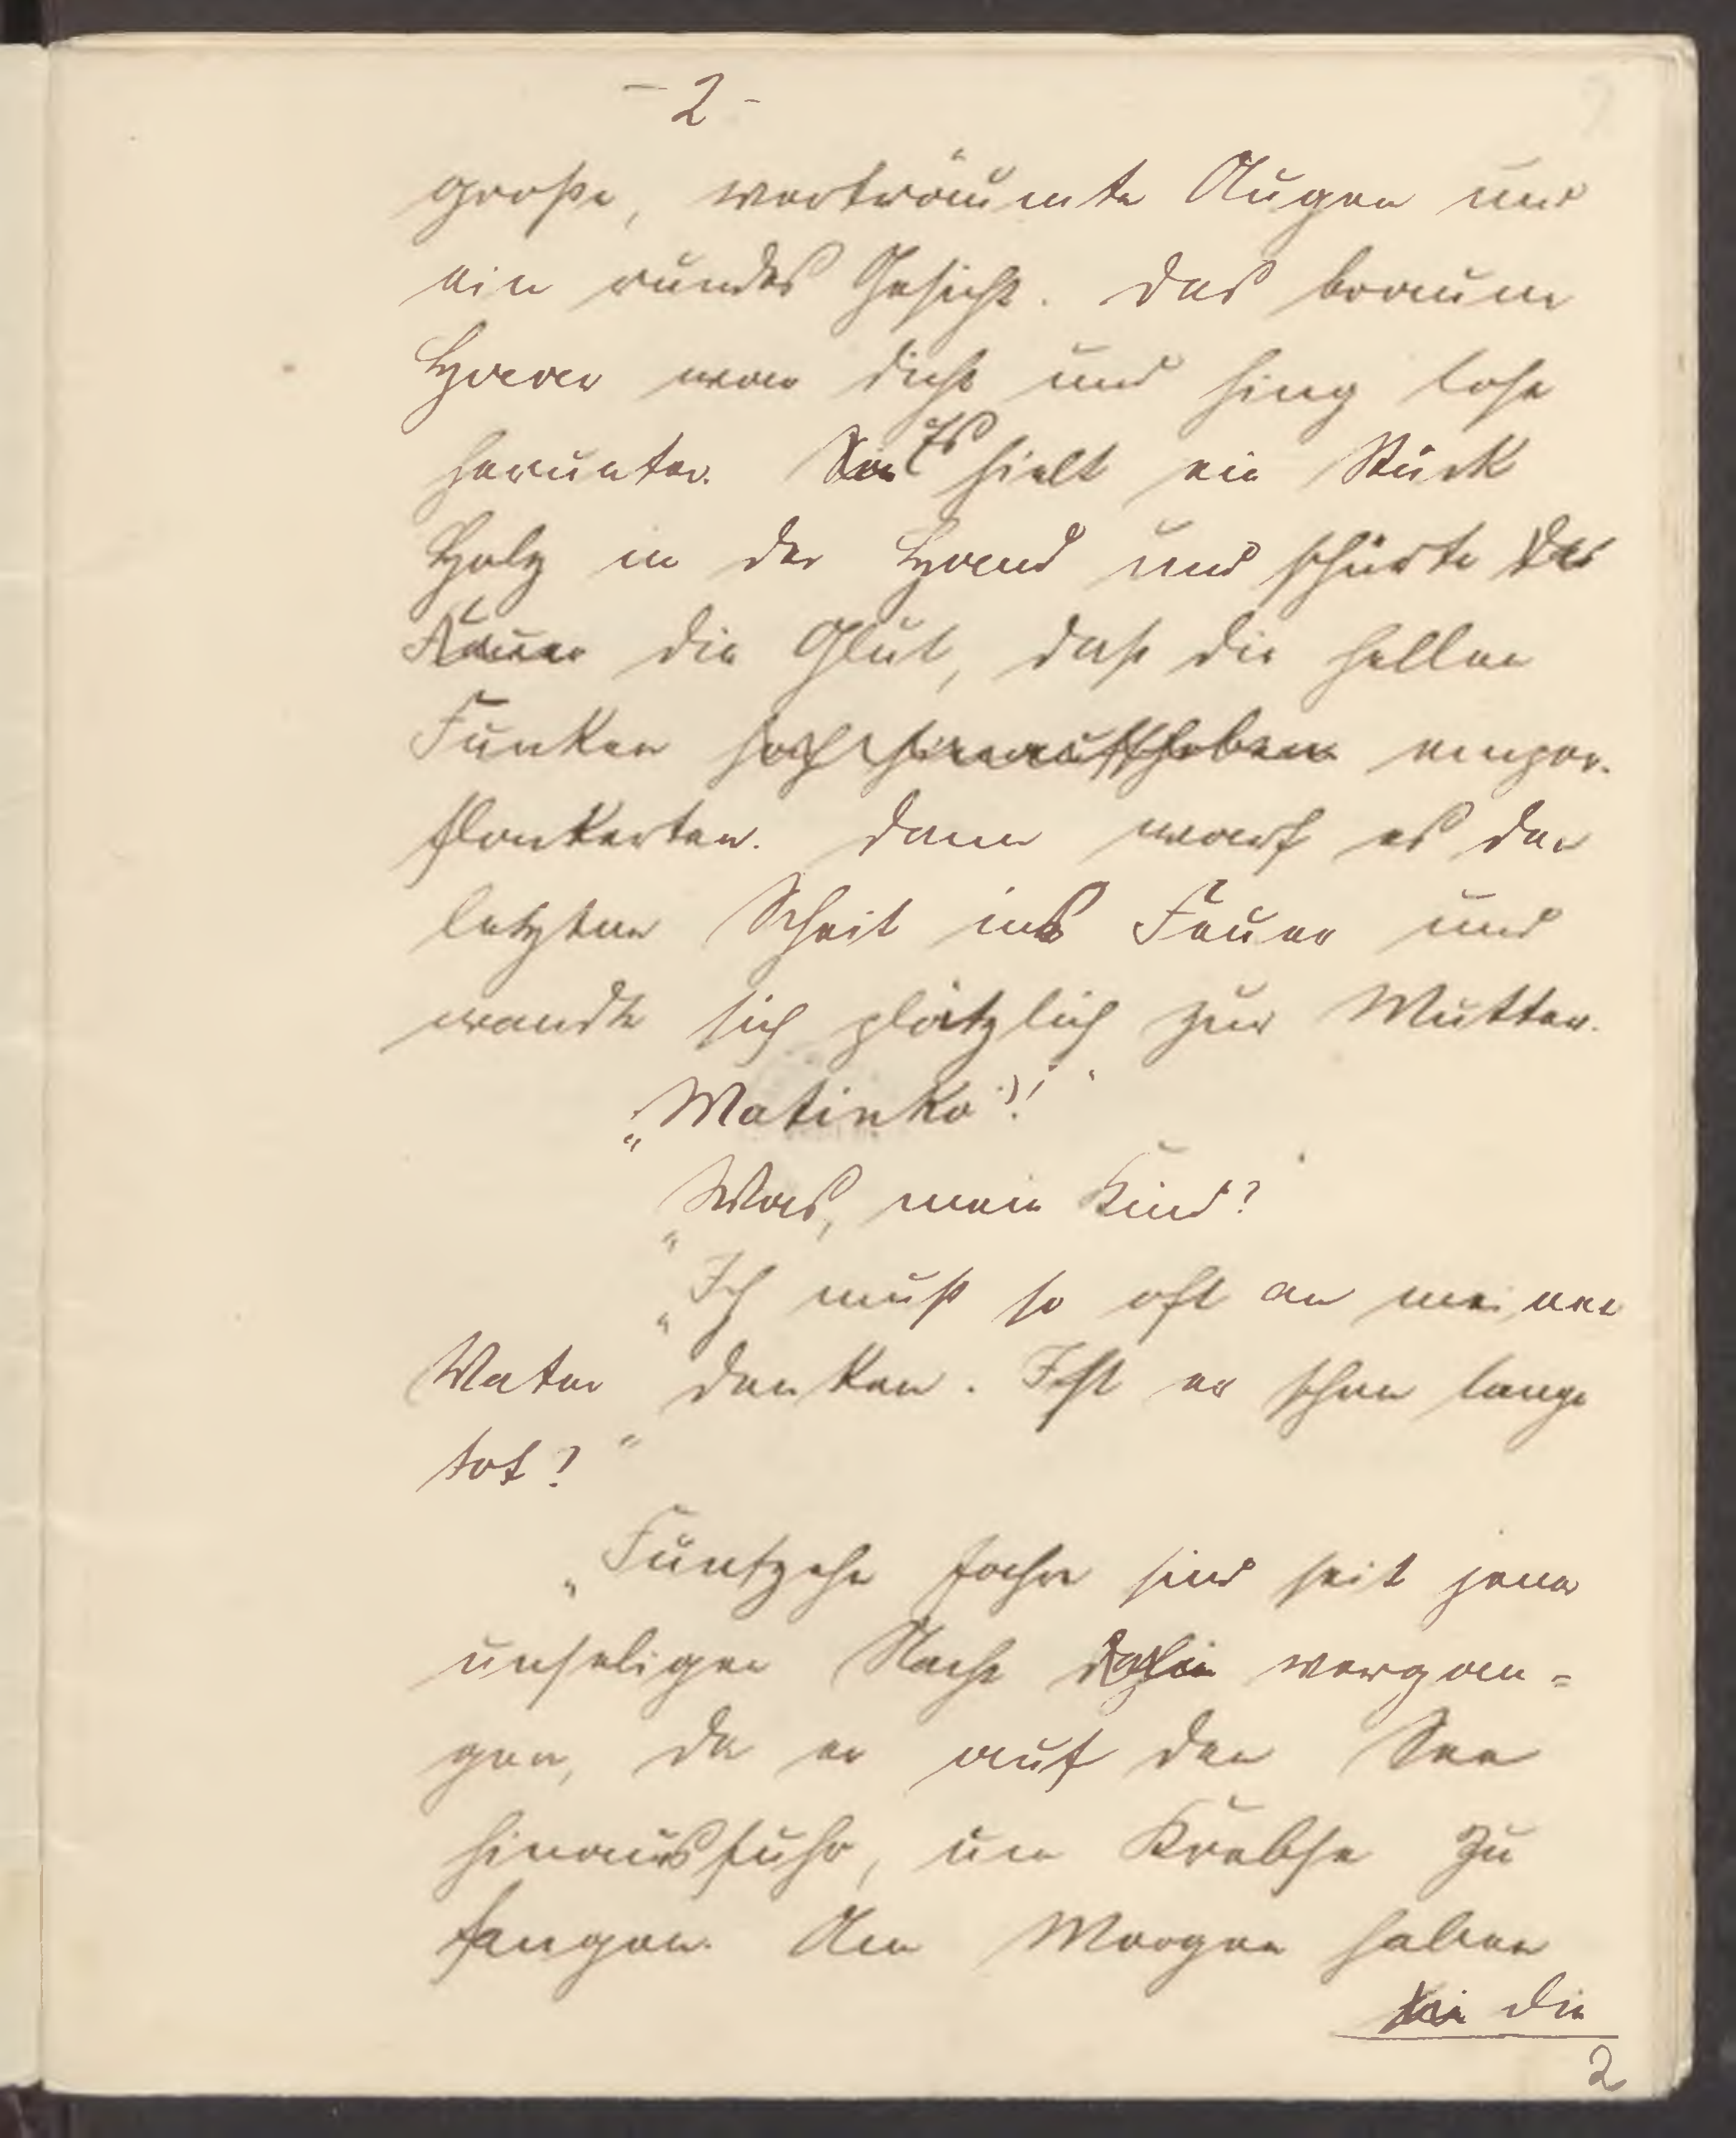 - 2 -
große, verträumte Augen und
ein rundes Gesicht. Das braune
Haar war dicht und hing lose
herunter. Sie Es hielt ein Stück
Holz in der Hand und schürte das
Feuer die Glut, daß die hellen
Funken hoch hinaufstoben empor-
flankerten. Dann warf es den
letzten Scheit ins Feuer und
wandte sich plötzlich zur Mutter.
„Matinka!"
„Was, mein Kind?
„Ich muß so oft an meinen
Vater denken. Ist er schon lange
tot?"
„Fünfzehn Jahre sind seit jener
unseligen Nacht dahin vergan=
gen, da er auf den See
hinausfuhr, um Krebse zu
fangen. Am Morgen haben
sie die
2